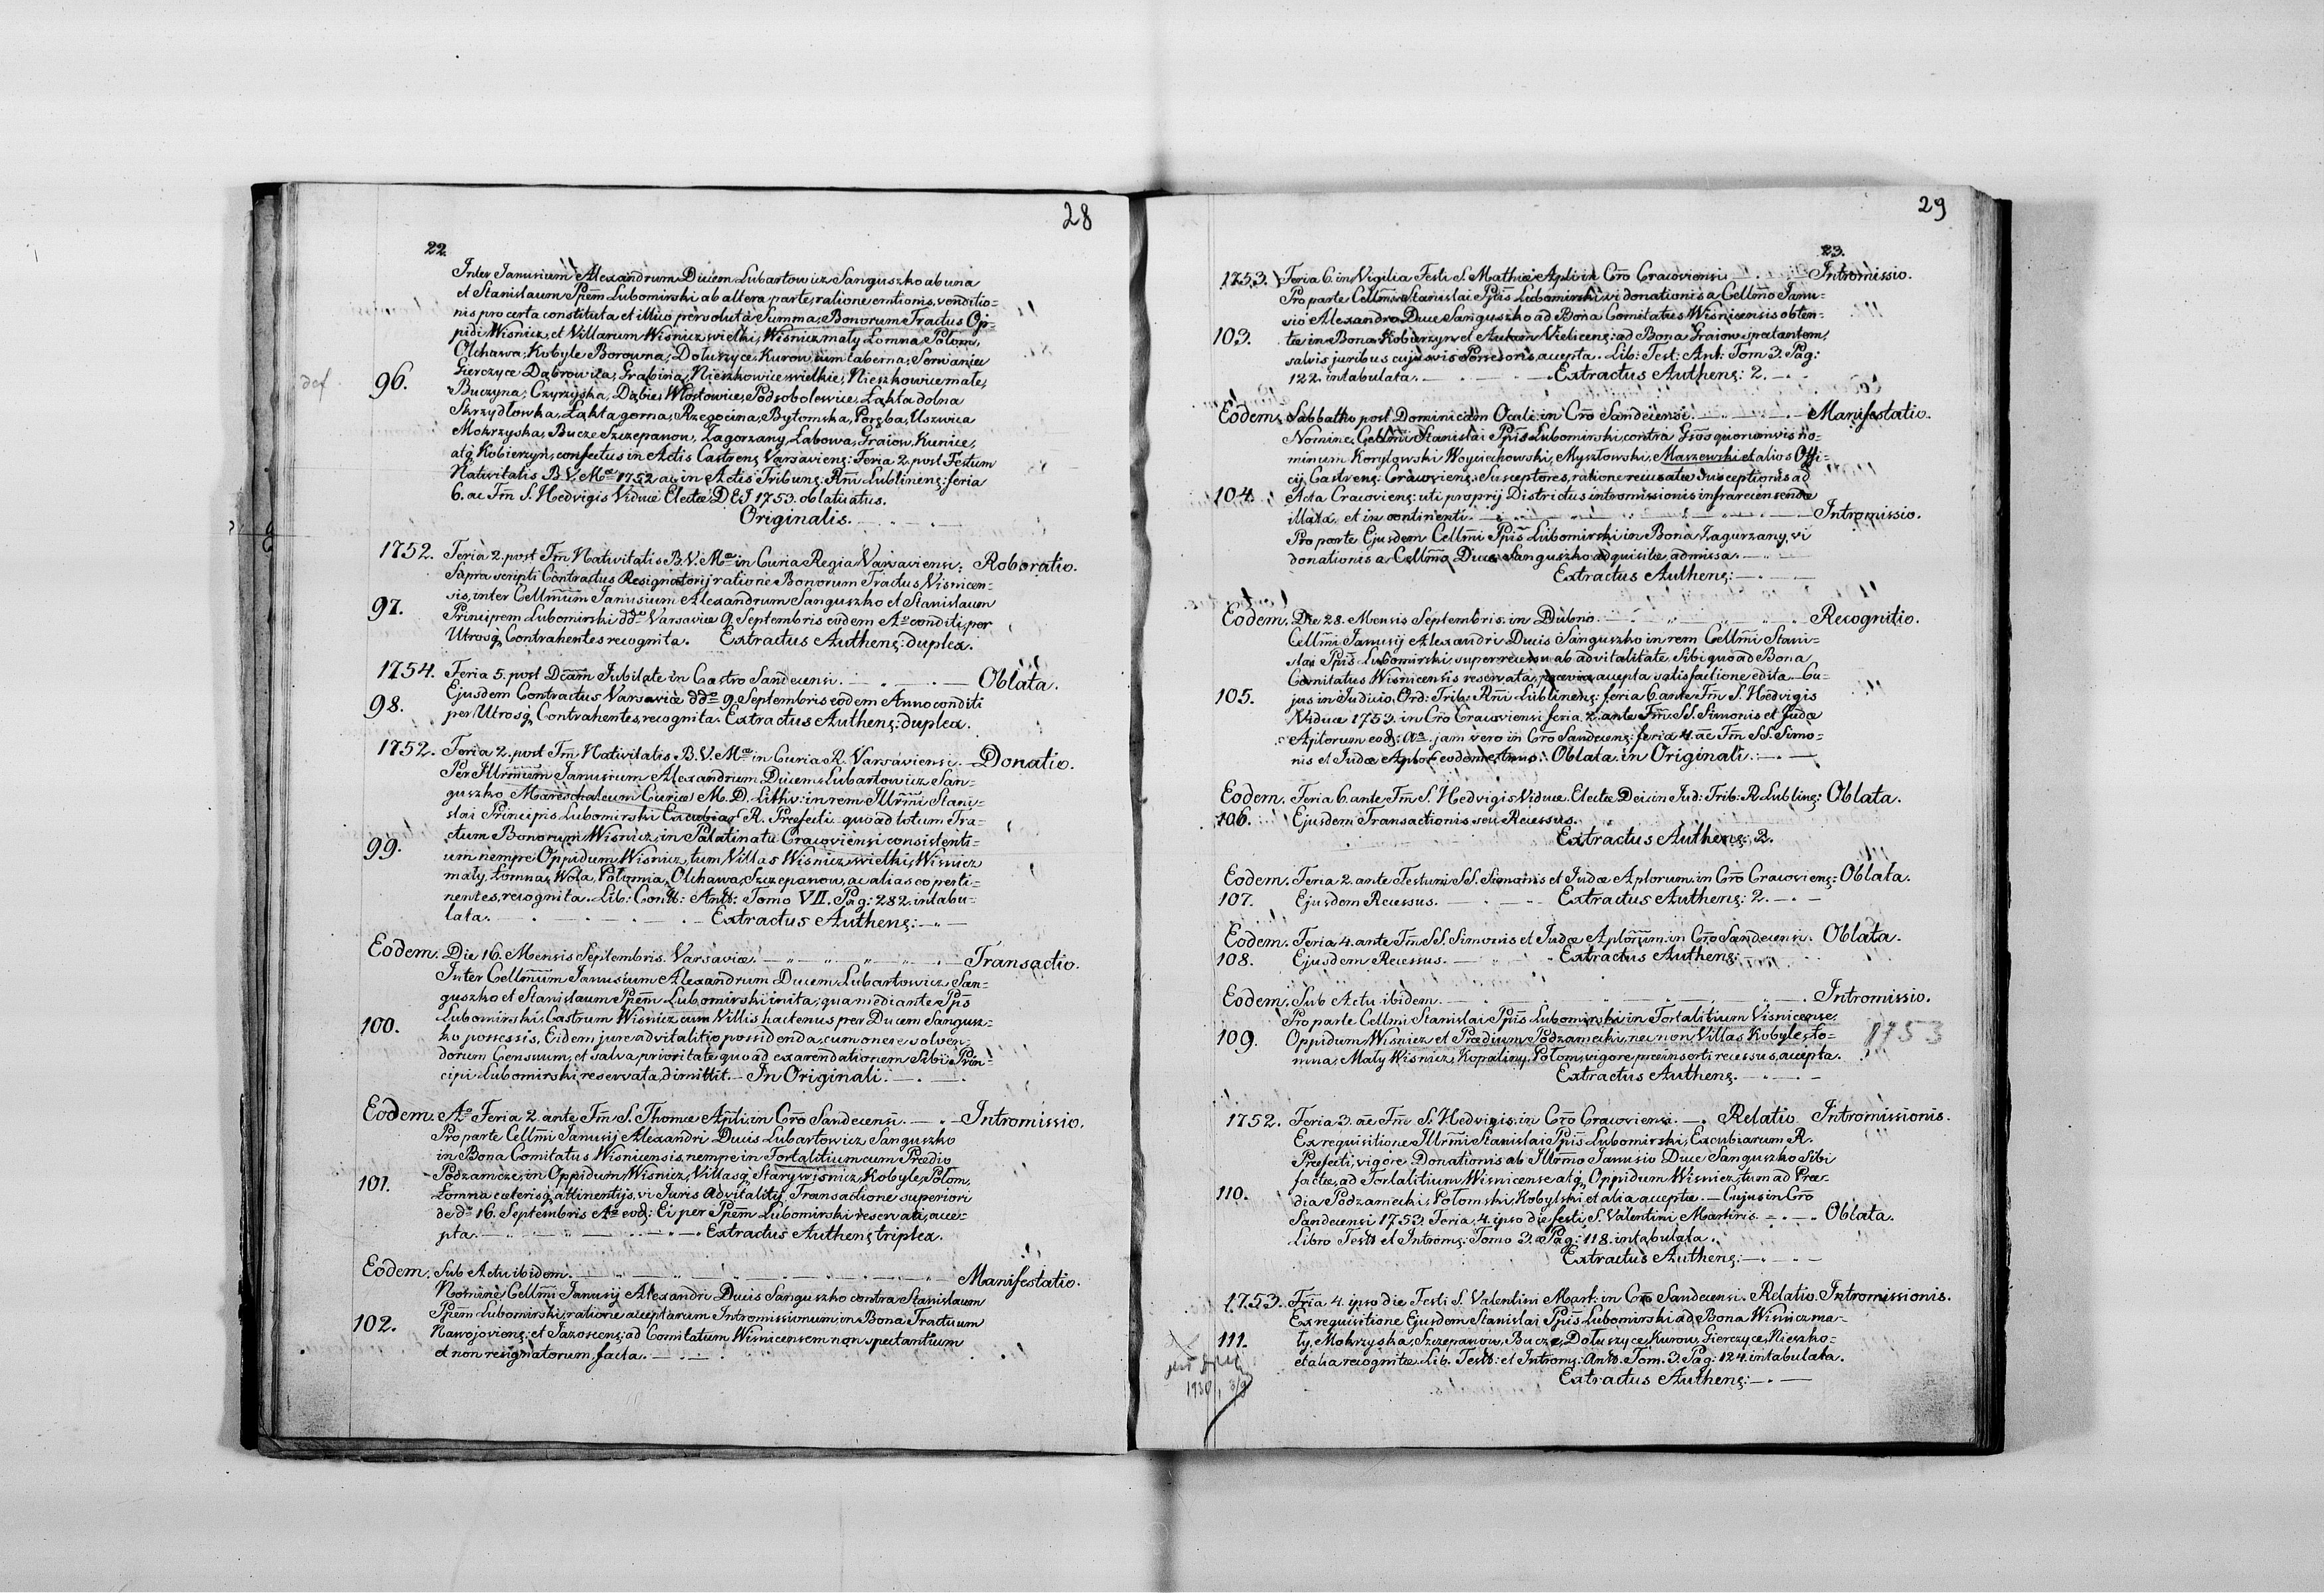 28
22.
Inter Janusium Alexandrum Ducem Lubartowicz Sanguszko ab una
et Stanislaum Ppem̃ Lubomirski ab altera parte, ratione emtionis, venditio-
nis pro certa constituta et illico persoluta Summa, Bonorum Tractus Op-
pidi Wisnicz, et Villarum Wisnicz wielki, Wisnicz mały Łomna, Połom,
Olchawa, Kobyle Borowna, Dołuszyce Kurow, cum taberna,
Gierczyce Dąbrowica, Grabina, Nieszkowice wielkie, Nieszkowice małe,
def. 96.
Buczyna, Czyrzyska, Dąbie Włostowice, Podsobolewice, Łąkta dolna
Skrzydłowka, Łąkta gorna, Rzegocina, Bytomska, Poręba, Uszwica
Mokrzyska, Bucze Szczepanow, Zagorzany, Łabowa, Graiow, Kunice,
atq Kobierzyn, confectus in Actis Castrens Varsaviens: Feria 2. post Festum
Nativitatis B. V. Mæ 1752 ac in Actis Tribuns: Rñi Lublinens: feria
6. ac Fm̃ S. Hedvigis Viduæ Electæ DEI 1753. oblatu atus.
Originalis.
1752. Feria 2. post Fm̃ Nativitatis B. V. Mæ in Curia Regia Varsaviensi. Roboratio.
Supra scripti Contractus Resignatorij ratione Bonorum Tractus Visnicen-
sis, inter Cellm̃um Janusium Alexandrum Sanguszko et Stanislaum
97. Principem Lubomirski ddo Varsaviæ 9 Septembris eodem Ao conditi, per
Utrosq Contrahentes recognita. Extractus Authens: duplex.
1754. Feria 5. post Dcam̃ Jubilate in Castro Sandecensi. Oblata.
Ejusdem Contractus Varsaviæ ddo 9 Septembris eodem Anno conditi
98. per Utrosq Contrahentes recognita. Extractus Authens: duplex.
1752. Feria 2. post Fm̃ Nativitatis B. V. Mæ in Curia R. Varsaviensi. Donatio.
Per Illrm̃um Janusium Alexandrum Ducem Lubartowicz San-
guszko Mareschalcum Curiæ M. D. Lithv: in rem Illrm̃i Stani-
slai Principis Lubomirski Excubiar R. Præfecti quoad totum Tra-
ctum Bonorum Wisnicz, in Palatinatu Cracoviensi consistenti-
99. um nempe Oppidum Wisnicz, tum Villas Wisnicz wielki, Wisnicz
mały, Łomna, Wola, Połomia, Olchawa, Szczepanow, ac alias eo perti-
nentes, recognita. Lib: Contr: Antt: Tomo VII. Pag: 282. intabu-
lata. Extractus Authens:
Eodem. Die 16. Mensis Septembris. Varsaviæ. Transactio.
Inter Cellm̃um Janusium Alexandrum Ducem Lubartowicz San-
guszko et Stanislaum Ppem̃ Lubomirski inita, qua mediante Pps
Lubomirski Castrum Wisnicz cum Villis hactenus per Ducem Sangusz-
100. ko possessis, Eidem jure advitalitio possidenda, cum onere solven-
dorum Censuum, et salva prioritate quoad exarendationem Sibi Prin-
cipi Lubomirski reservata, dimittit. In Originali.
Eodem. Ao Feria 2. ante Fm̃ S. Thomæ Apli in Crõ Sandecensi. Intromissio.
Pro parte Cellm̃i Janusij Alexandri Ducis Lubartowicz Sanguszko
in Bona Comitatus Wisnicensis, nempe in Fortalitium cum Prædio
Podzamcze, in Oppidum Wisnicz, Villasq Stary wisnicz, Kobyle, Połom,
101. Łomna cæterisq attinentijs, vi Juris Advitalitij, Transactione superiori
de do 16. Septembris Ao eod: Ei per Ppem̃ Lubomirski reservati, acce-
pta. Extractus Authens triplex.
Eodem. Sub Actu ibidem. Manifestatio.
Nomine Cellm̃i Janusij Alexandri Ducis Sanguszko contra Stanislaum
Ppem̃ Lubomirski, ratione acceptarum Intromissionum, in Bona Tractuum
102. Nawojoviens: et Jazoscens: ad Comitatum Wisnicensem non spectantium
et non resignatorum, facta.
29
23.
1753. Feria 6. in Vigilia Festi S. Mathiæ Apli in Crõ Cracoviensi Intromissio.
Pro parte Cellm̃i Stanislai Ppis̃ Lubomirski vi donationis a Cellm̃o Janu-
sio Alexandro Duce Sanguszko ad Bona Comitatus Wisnicensis obten-
103. tæ in Bona Kobierzyn et Vieliciens: ad Bona Graiow spectantem,
salvis juribus cujusvis Possessoris, accepta. Lib: Test: Ant: Tom 3. Pag:
122. intabulata. Extractus Authens: 2.
Eodem. Sabbatho post Dominicam Oculi in Crõ Sandecensi. Manifestatio.
Nomine Cellm̃i Stanislai Ppis̃ Lubomirski, contra Gsos quorumvis no-
minum Korytowski Woyciechowski, Mysztowski, Maszewski et alios Offi-
cij Castrens: Cracoviens: Susceptores, ratione recusatæ Susceptionis ad
104. Acta Cracoviens: uti proprij Districtus intromissionis infra recensendæ
illata, et in continenti. Intromissio.
Pro parte Ejusdem Cellm̃i Ppis̃ Lubomirski in Bona Zagurzany, vi
donationis a Cellm̃o Duce Sanguszko adquisitæ, admissa.
Extractus Authens:
Eodem. Die 28. Mensis Septembris. in Dubno. Recognitio.
Cellm̃i Janusij Alexandri Ducis Sanguszko in rem Cellm̃i Stani-
slai Ppis̃ Lubomirski, super recessu ab advitalitate, Sibi quoad Bona
Comitatus Wisnicensis reservata, prævia accepta satisfactione edita. Cu-
105. jus in Judicio Ord: Trib: Rñi Lublinens: feria 6. ante Fm̃ S. Hedvigis
Viduæ 1753. in Crõ Cracoviensi feria 2. ante Fm̃ SS. Simonis et Judæ
Aplorum eod: Ao. jam vero in Crõ Sandecens: feria 4. ac Fm̃ SS. Simo-
nis et Judæ Aplor eodem Anno. Oblata in Originali.
Eodem. Feria 6. ante Fm̃ S. Hedvigis Viduæ Electæ Dei in Jud: Trib: R. Lublins: Oblata.
106. Ejusdem Transactionis seu Recessus.
Extractus Authens: 2.
Eodem. Feria 2. ante Festum SS. Simonis et Judæ Aplorum in Crõ Cracoviens: Oblata.
107. Ejusdem Recessus. Extractus Authens: 2.
Eodem. Feria 4. ante Fm̃ SS. Simonis et Judæ Aplorum in Crõ Sandecensi. Oblata.
108. Ejusdem Recessus. Extractus Authens:
Eodem. Sub Actu ibidem. Intromissio.
Pro parte Cellmi Stanislai Ppis̃ Lubomirski in Fortalitium Visnicense,
109. Oppidum Wisnicz et Prædium Podzamecki, nec non Villas Kobyle, Ło- 1753
mna, Mały Wisnicz, Kopaliny, Połom, vigore præinserti recessus, accepta.
Extractus Authens.
1752. Feria 3. ac Fm̃ S. Hedvigis, in Crõ Cracoviensi. Relatio Intromissionis.
Ex requisitione Illrm̃i Stanislai Ppis̃ Lubomirski, Excubiarum R.
Præfecti, vigore Donationis ab Illrm̃o Janusio Duce Sanguszko Sibi
factæ, ad Fortalitium Wisnicense atq Oppidum Wisnicz, tum ad Præ-
110. dia Podzamecki, Połomski, Kobylski et alia acceptæ. Cujus in Crõ
Sandecensi 1753. Feria 4. ipso die festi S. Valentini Martiris. Oblata.
Libro Testt et Introms: Tomo 3. Pag: 118. intabulata.
Extractus Authens:
1753. Fria 4. ipso die Festi S. Valentini Mart: in Crõ Sandecensi. Relatio Intromissionis.
Ex requisitione Ejusdem Stanislai Ppis̃ Lubomirski ad Bona Wisnicz ma-
111. ły, Mokrzyska, Szczepanow, Bucze, Dołuszyce, Kurow, Gierczyce, Nieszko-
et alia recognitæ. Lib. Testt: et Introms: Antt. Tom. 3. Pag: 124. intabulata.
Extractus Authens: